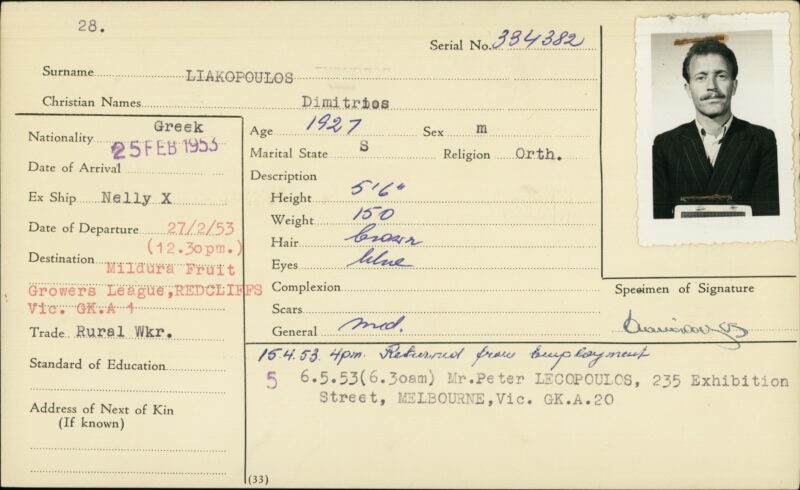 28.
Serial No. 334382
Surname LIAKOPOULOS
Christian Names Dimitrios
Nationality Greek
Date of Arrival 25 FEB 1953
Ex Ship Nelly X
Date of Departure 27/2/53
(12.30pm.)
Destination Mildura Fruit
Growers League,REDCLIFFS
Vic. GK.A 1
Trade Rural Wkr.
Standard of Education
Address of Next of Kin
(If known)
Age 1927 Sex m
Marital State S Religion Orth.
Description
Height 5'6"
Weight 150
Hair brown
Eyes blue
Complexion
Scars
General med.
Specimen of Signature
15.4.53. 4pm. Returned from employment
5 6.5.53(6.30am) Mr.Peter LECOPOULOS, 235 Exhibition
Street, MELBOURNE,Vic. GK.A.20
(33)